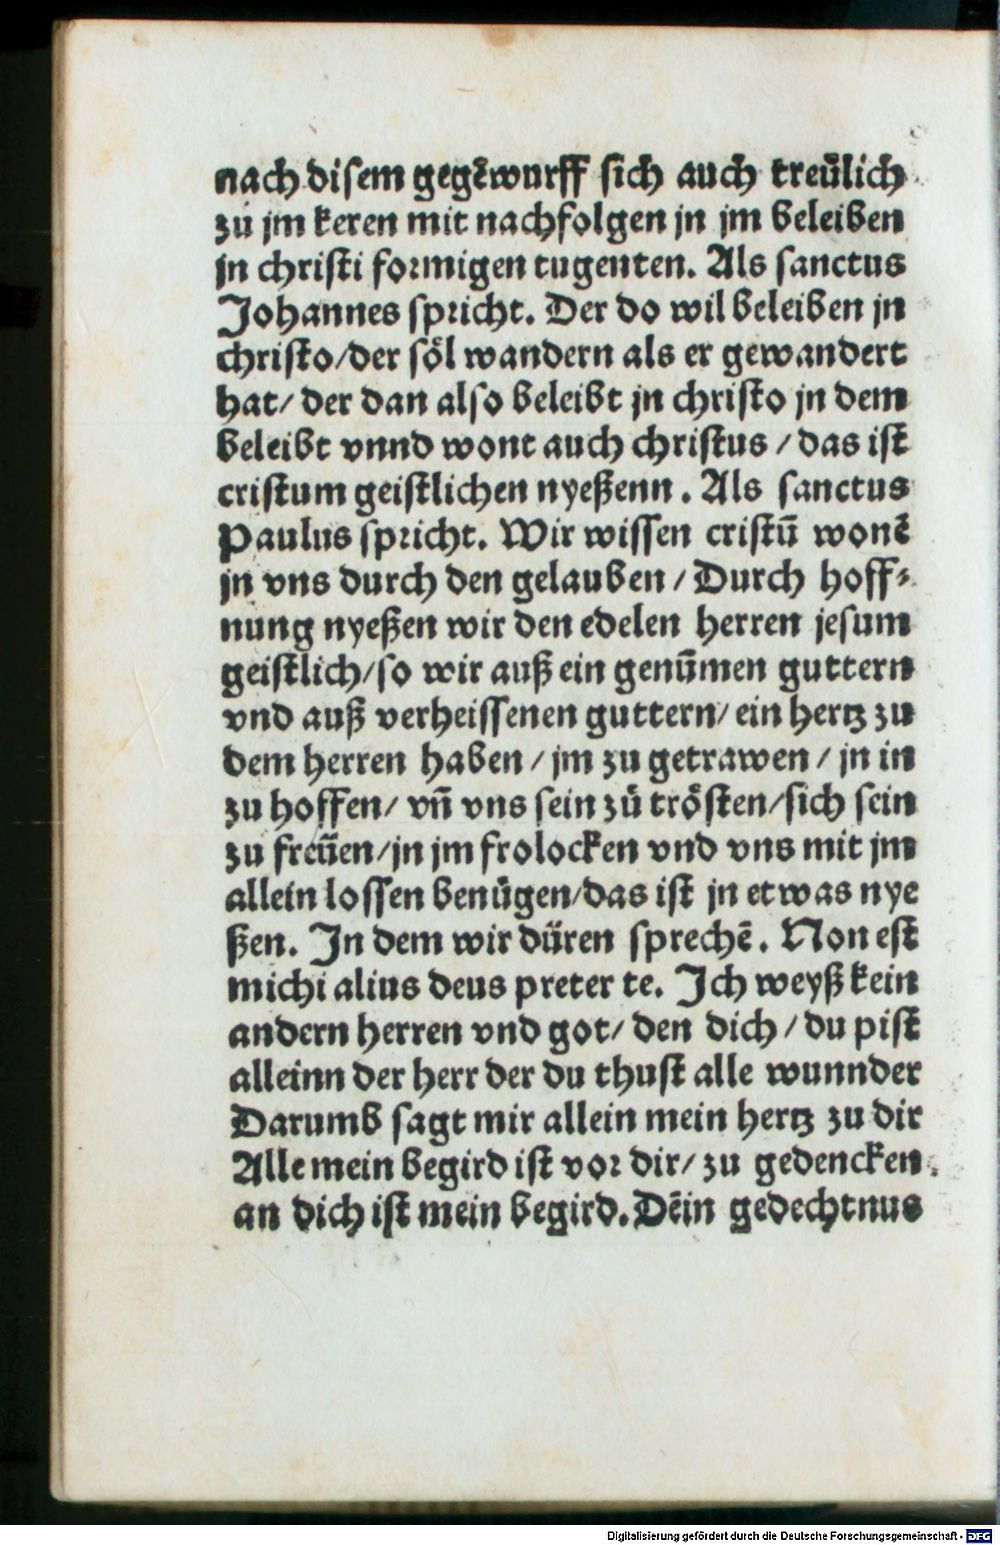 nach disem gegẽwurff sich auch treůlich
zů jm keren mit nachfolgen jn jm beleiben
jn christi formigen tugenten. Als sanctus
Johannes spricht. Der do wil beleiben jn
christo/der söl wandern als er gewandert
hat/ der dan also beleibt jn christo jn dem
beleibt vnnd wont auch christus / das ist
cristum geistlichen nyeßenn . Als sanctus
Paulus spricht. Wir wissen cristū wonē
jn vns durch den gelauben / Durch hoff⸗
nung nyeßen wir den edelen herren jesum
geistlich/so wir auß ein genūmen guttern
vnd auß verheissenen guttern/ ein hertz zu
dem herren haben / jm zů getrawen / jn in
zu hoffen/ vn̄ vns sein zů trösten/sich sein
zu freūen/jn jm frolocken vnd vns mit jm
allein lossen benůgen/das ist jn etwas nye
ßen. In dem wir düren sprechē. Non est
michi alius deus preter te. Ich weyß kein
andern herren vnd got/ den dich / du pist
alleinn der herr der du thust alle wunnder
Darumb sagt mir allein mein hertz zu dir
Alle mein begird ist vor dir/ zu gedencken.
an dich ist mein begird. Dēin gedechtnus
Digitalisierung gefördert durch die Deutsche Forschungsgemeinschaft - DFG